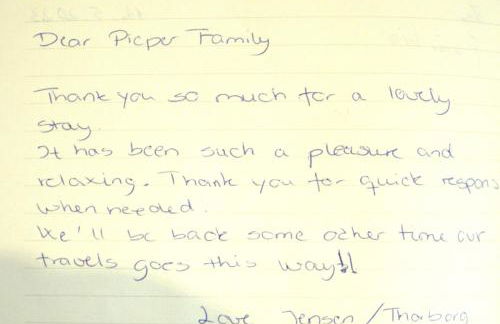 Dear Pieper Family
Thank you so much for a lovely
stay.
It has been such a pleasure and
relaxing. Thank you for quick respons
when needed.
We'll be back some other time our
travels goes this way!!
Love Jensen / Thorborg